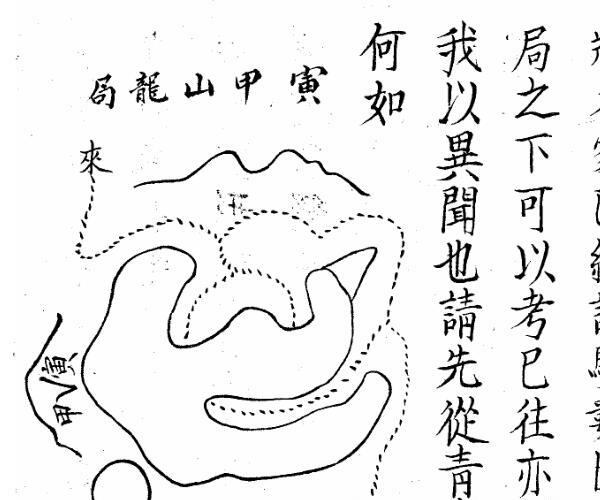 局之下可以考已往亦
我以異聞也請先從青
何如
寅甲山龍局
來
寅甲